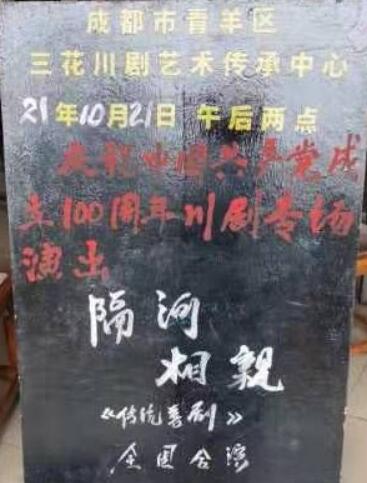 成都市青羊区
三花川剧艺术传承中心
21年10月21日 午后两点
庆祝中国共产党成
立100周年川剧专场
演出
隔河
相親
《传统喜剧》
全团合演